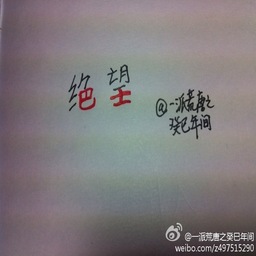 绝望
@一派荒唐之
癸巳年间
@一派荒唐之癸巳年间
weibo.com/z497515290